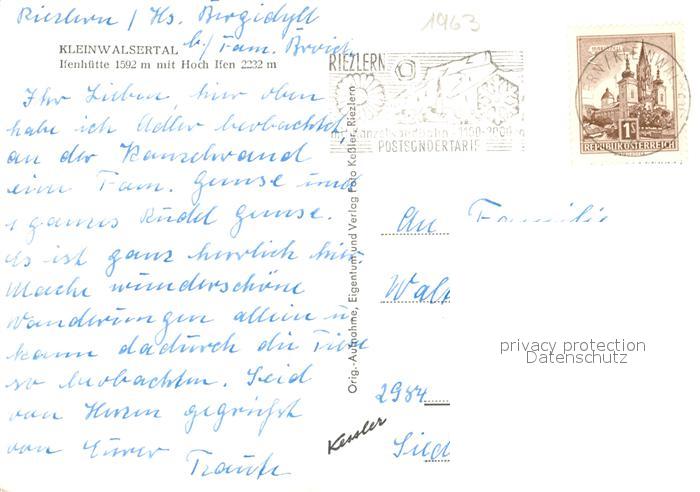 Riezlern / Hs. Bergidyll
b./ Fam. Broich
1963
KLEINWALSERTAL
Ifenhütte 1592 m mit Hoch Ifen 2232 m
RIEZLERN
Kanzelwandbahn 1100-2000 m
POSTSONDERTARIF
1S
REPUBLIK ÖSTERREICH
Ihr Lieben, hier oben
habe ich Adler beobachtet,
an der Kanzelwand
eine Fam. Gemse und
1 ganzes Rudel Gemse.
Es ist ganz herrlich hier.
Mache wunderschöne
Wanderungen allein u.
kann dadurch die Tiere
so beobachten. Seid
von Herzen gegrüsst
von Eurer
Traute
Orig.-Aufnahme, Eigentum und Verlag Foto Keßler, Riezlern
Kessler
An Familie
Walt
2984
Sied
privacy protection
Datenschutz